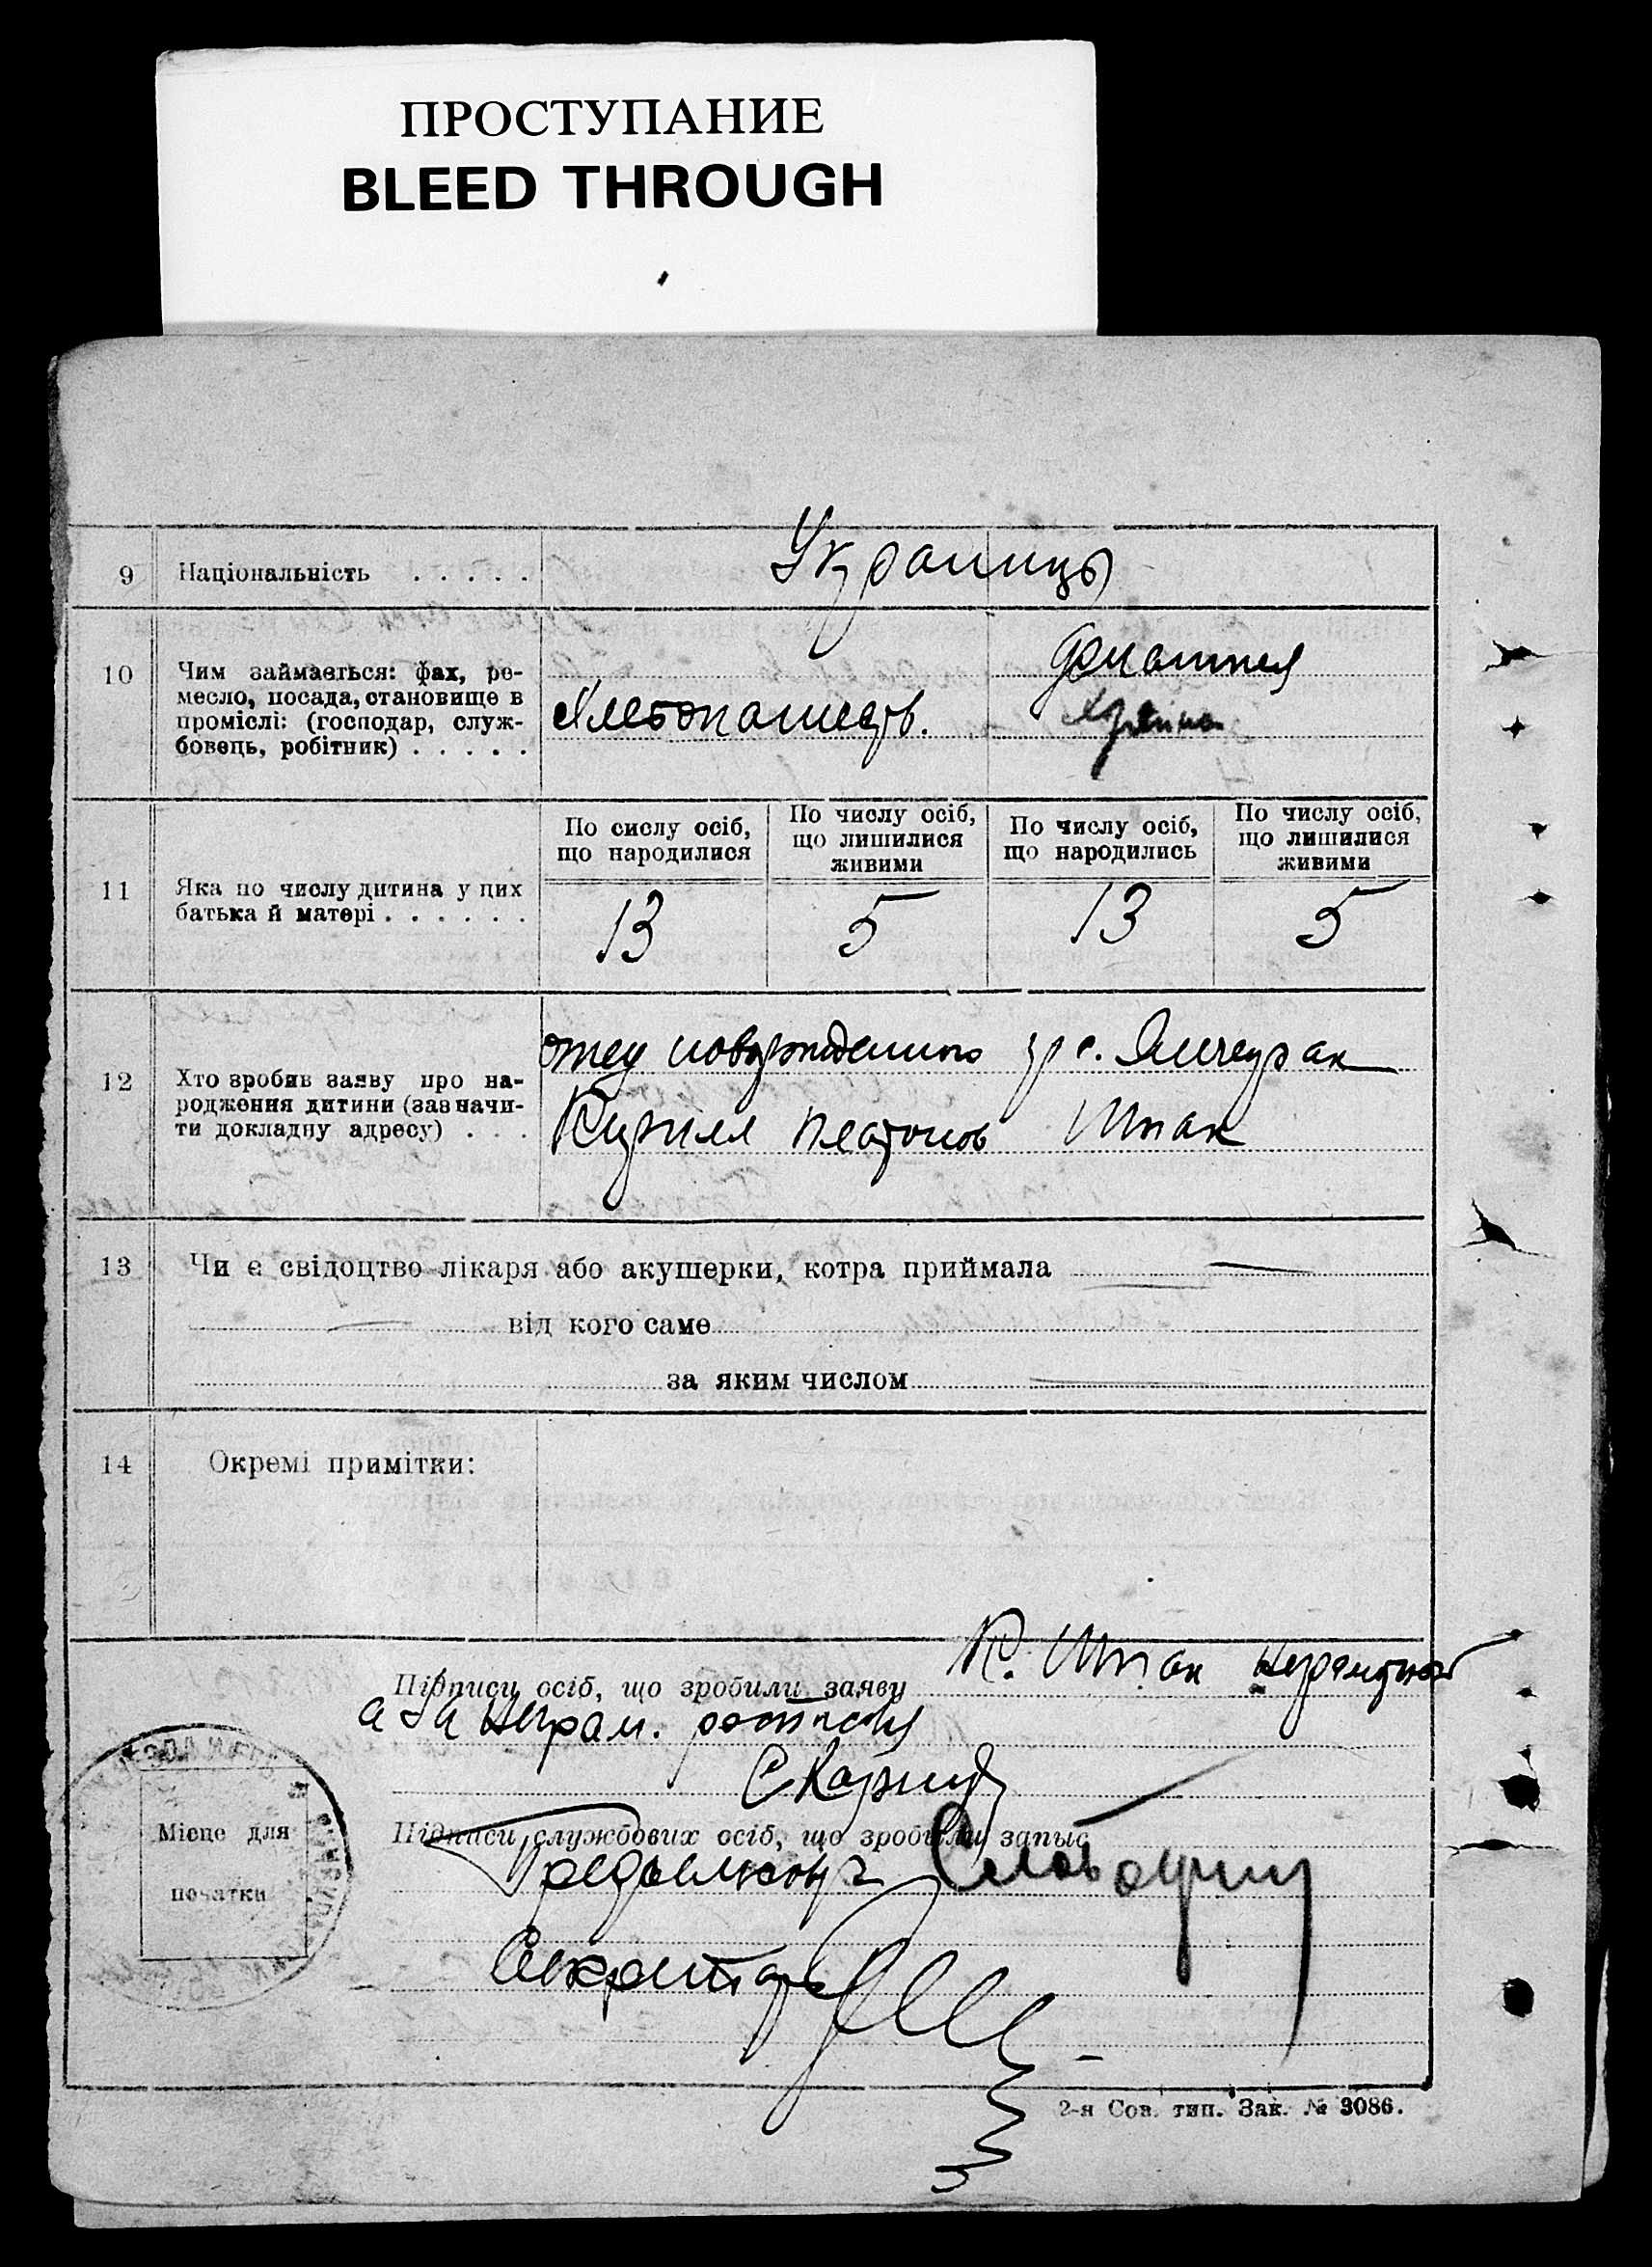 ПРОСТУПАНИЕ
BLEED THROUGH
9 Національність . . . . . Украинцы
10 Чим займається: фах, ре-
месло, посада, становище в
проміслі: (господар, служ-
бовець, робітник) . . . . .
Хлебопашеств.
домашняя
11 Яка по числу дитина у цих
батька й матері . . . . . .
По сислу осіб,
що народилися
По числу осіб,
що лишилися
живими
По числу осіб,
що народились
По числу осіб,
що лишилися
живими
13 5 13 5
12 Хто зробив заяву про на-
родження дитини (зазначи-
ти докладну адресу) . . .
отец новорожденного гр с. Янчекрак
Кирилл Платонов Шпак
13 Чи є свідоцтво лікаря або акушерки, котра приймала
від кого саме
за яким числом
14 Окремі примітки:
Підписи осіб, що зробили заяву К. Шпак неграмотной
а за неграм. росписал
Підписи службових осіб, що зробили запыс
Місце для
печатки
Секретарь
2-я Сов. тип. Зак. № 3086.